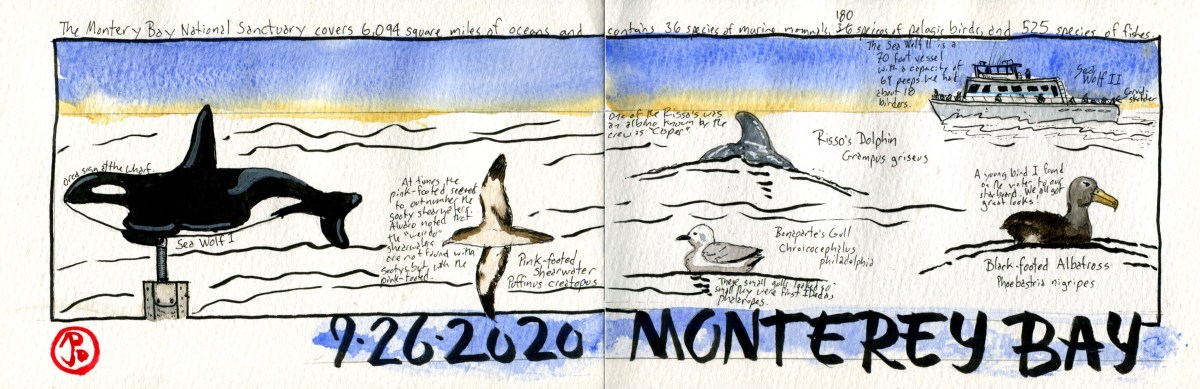 The Montery Bay National Sanctuary covers 6,094 square miles of oceans and contains 36 species of marine mammals, 180 species of pelagic birds, and 525 species of fishes.
The Sea Wolf II is a
70 foot vessel
with a capacity of
69 peeps. We had
about 18
birders.
Sea
Wolf II
Corvid
sketcher
orca sign at the wharf
Sea Wolf I
At times, the
pink-footed seemed
to outnumber the
sooty shearwaters.
Alvaro noted that
the "weirdo"
shearwaters
are not found with
sootys but with the
pink-footed.
Pink-footed
Shearwater
Puffinus creatopus
One of the Risso's was
an albino known by the
crew as "Casper"
Risso's Dolphin
Grampus griseus
Bonaparte's Gull
Chroicocephalus
philadelphia
These small gulls looked so
small they were first ID'ed as
phalaropes.
A young bird I found
on the water to our
starboard. We all got
great looks!
Black-footed Albatross
Phoebastria nigripes
9·26·2020 MONTEREY BAY